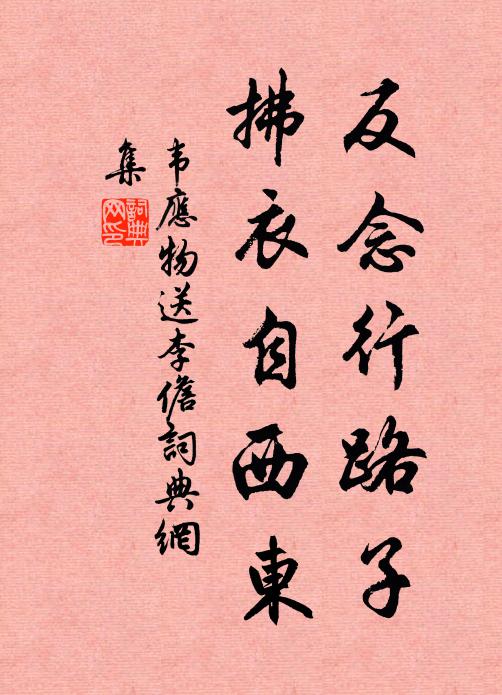 反念行路子
拂衣自西東
韦應物送李儋詞典網
集
詞典網印